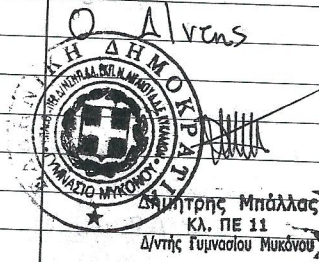 Ο Δ/ντης
ΕΛΛΗΝΙΚΗ ΔΗΜΟΚΡΑΤΙΑ
ΓΥΜΝΑΣΙΟ ΜΥΚΟΝΟΥ
Δημήτρης Μπάλλας
ΚΛ. ΠΕ 11
Δ/ντής Γυμνασίου Μυκόνου